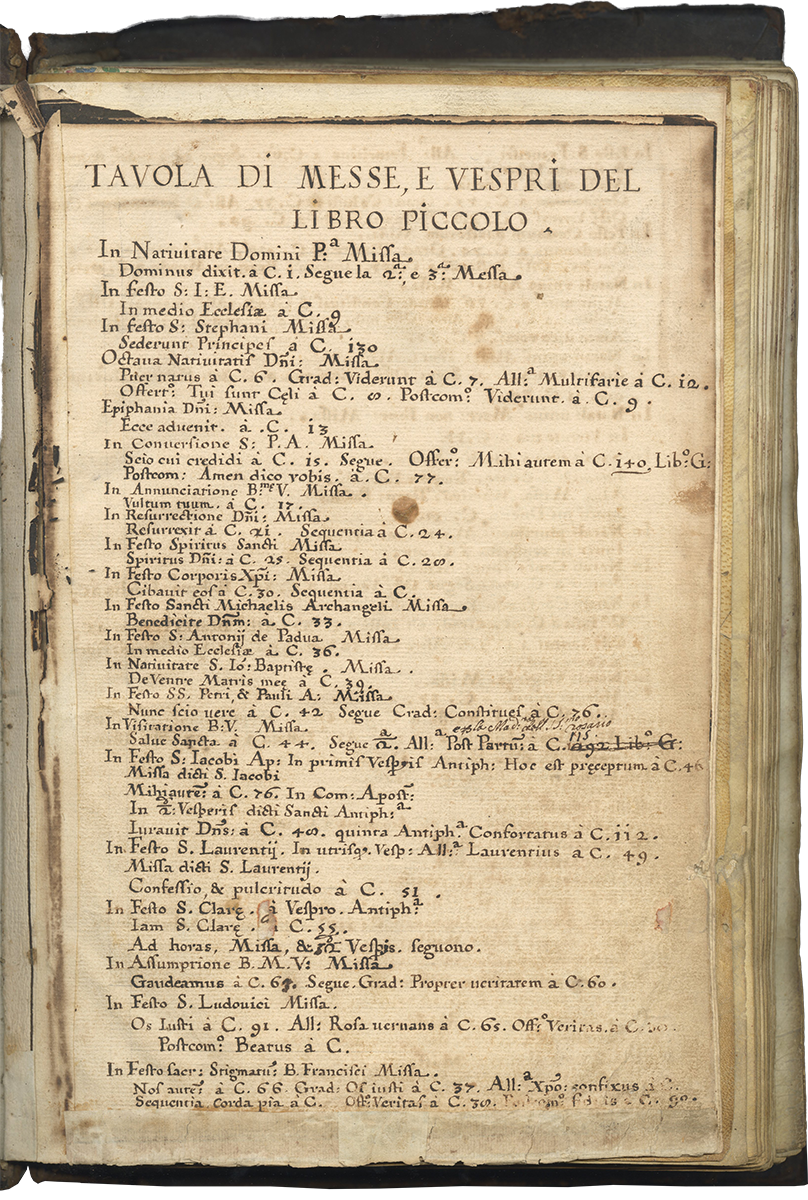 TAVOLA DI MESSE, E VESPRI DEL
LIBRO PICCOLO.
In Nativitate Domini P.ª Missa
Dominus dixit. à C. i. Segue la 2ª: e 3ª: Messa
In festo S: I: E. Missa
In medio Ecclesiæ à C. 9
In festo S: Stephani Missa
Sederunt Principes à C. 130
Octava Nativitatis Dñi: Missa
Puer natus à C. 6. Grad: Viderunt à C. 7. All:ª Multifarie à C. 12.
Offert: Tui sunt Cęli à C. 8. Postcom: Viderunt. à C. 9.
Epiphania Dñi: Missa
Ecce advenit. à .C. 13
In Conversione S: P. A. Missa.
Scio cui credidi à C. 15. Segue. Offer: Mihi autem à C. 140, Lib.º G:
Postcom: Amen dico vobis. à C. 77.
In Annunciatione B.me V. Missa.
Vultum tuum. à C. 17.
In Resurrectione Dñi: Missa
Resurrexit à C. 21. Sequentia à C. 24.
In Festo Spiritus Sancti Missa
Spiritus Dñi: à C. 25. Sequentia à C. 28.
In Festo Corporis Xpi: Missa
Cibavit eos à C. 30. Sequentia à C.
In Festo Sancti Michaelis Archangeli Missa
Benedicite Dñm: à C. 33.
In Festo S: Antonij de Padua Missa
In medio Ecclesiæ à C. 36.
In Nativitate S. Io: Baptistę. Missa.
De Ventre Matris meę à C. 39.
In Festo SS. Petri, & Pauli A: Missa
Nunc scio vere à C. 42 Segue Grad: Constitues à C. 76.
In Visitatione B: V. Missa. S. Rosario
Salve Sancta à C. 44. Segue 2.ª All:ª Post Partũ: à C. 192 Lib:º G:
In Festo S: Iacobi Ap: In primis Vespis Antiph: Hoc est pręceptum à C. 46
Missa dicti S. Iacobi
Mihi autẽ: à C. 76. In Com: Apost:
In 2: Vesperis dicti Sancti Antiph:ª
Iuravit Dñs: à C. 48. quinta Antiph.ª Confortatus à C. 112.
In Festo S. Laurentij. In utrisq. Vesp: All:ª Laurentius à C. 49.
Missa dicti S. Laurentij.
Confessio, & pulcritudo à C. 51.
In Festo S. Clarę. à Vespro. Antiph:ª
Iam S. Clarę. C. 55.
Ad horas, Missa, & 2 Vespis. seguono.
In Assumptione B. M. V: Missa
Gaudeamus à C. 65. Segue. Grad: Propter veritatem à C. 60.
In Festo S. Ludovici Missa.
Os Iusti à C. 91. All: Rosa vernans à C. 65. Off:º Veritas. à C.
Postcom: Beatus à C.
In Festo sacr: Stigmatũ: B. Francisci Missa.
Nos autẽ: à C. 66 Grad: Os iusti à C. 37. All:ª Xpõ: confixus à C.
Sequentia corda pia à C. Off: Veritas à C. 38. C. 90.